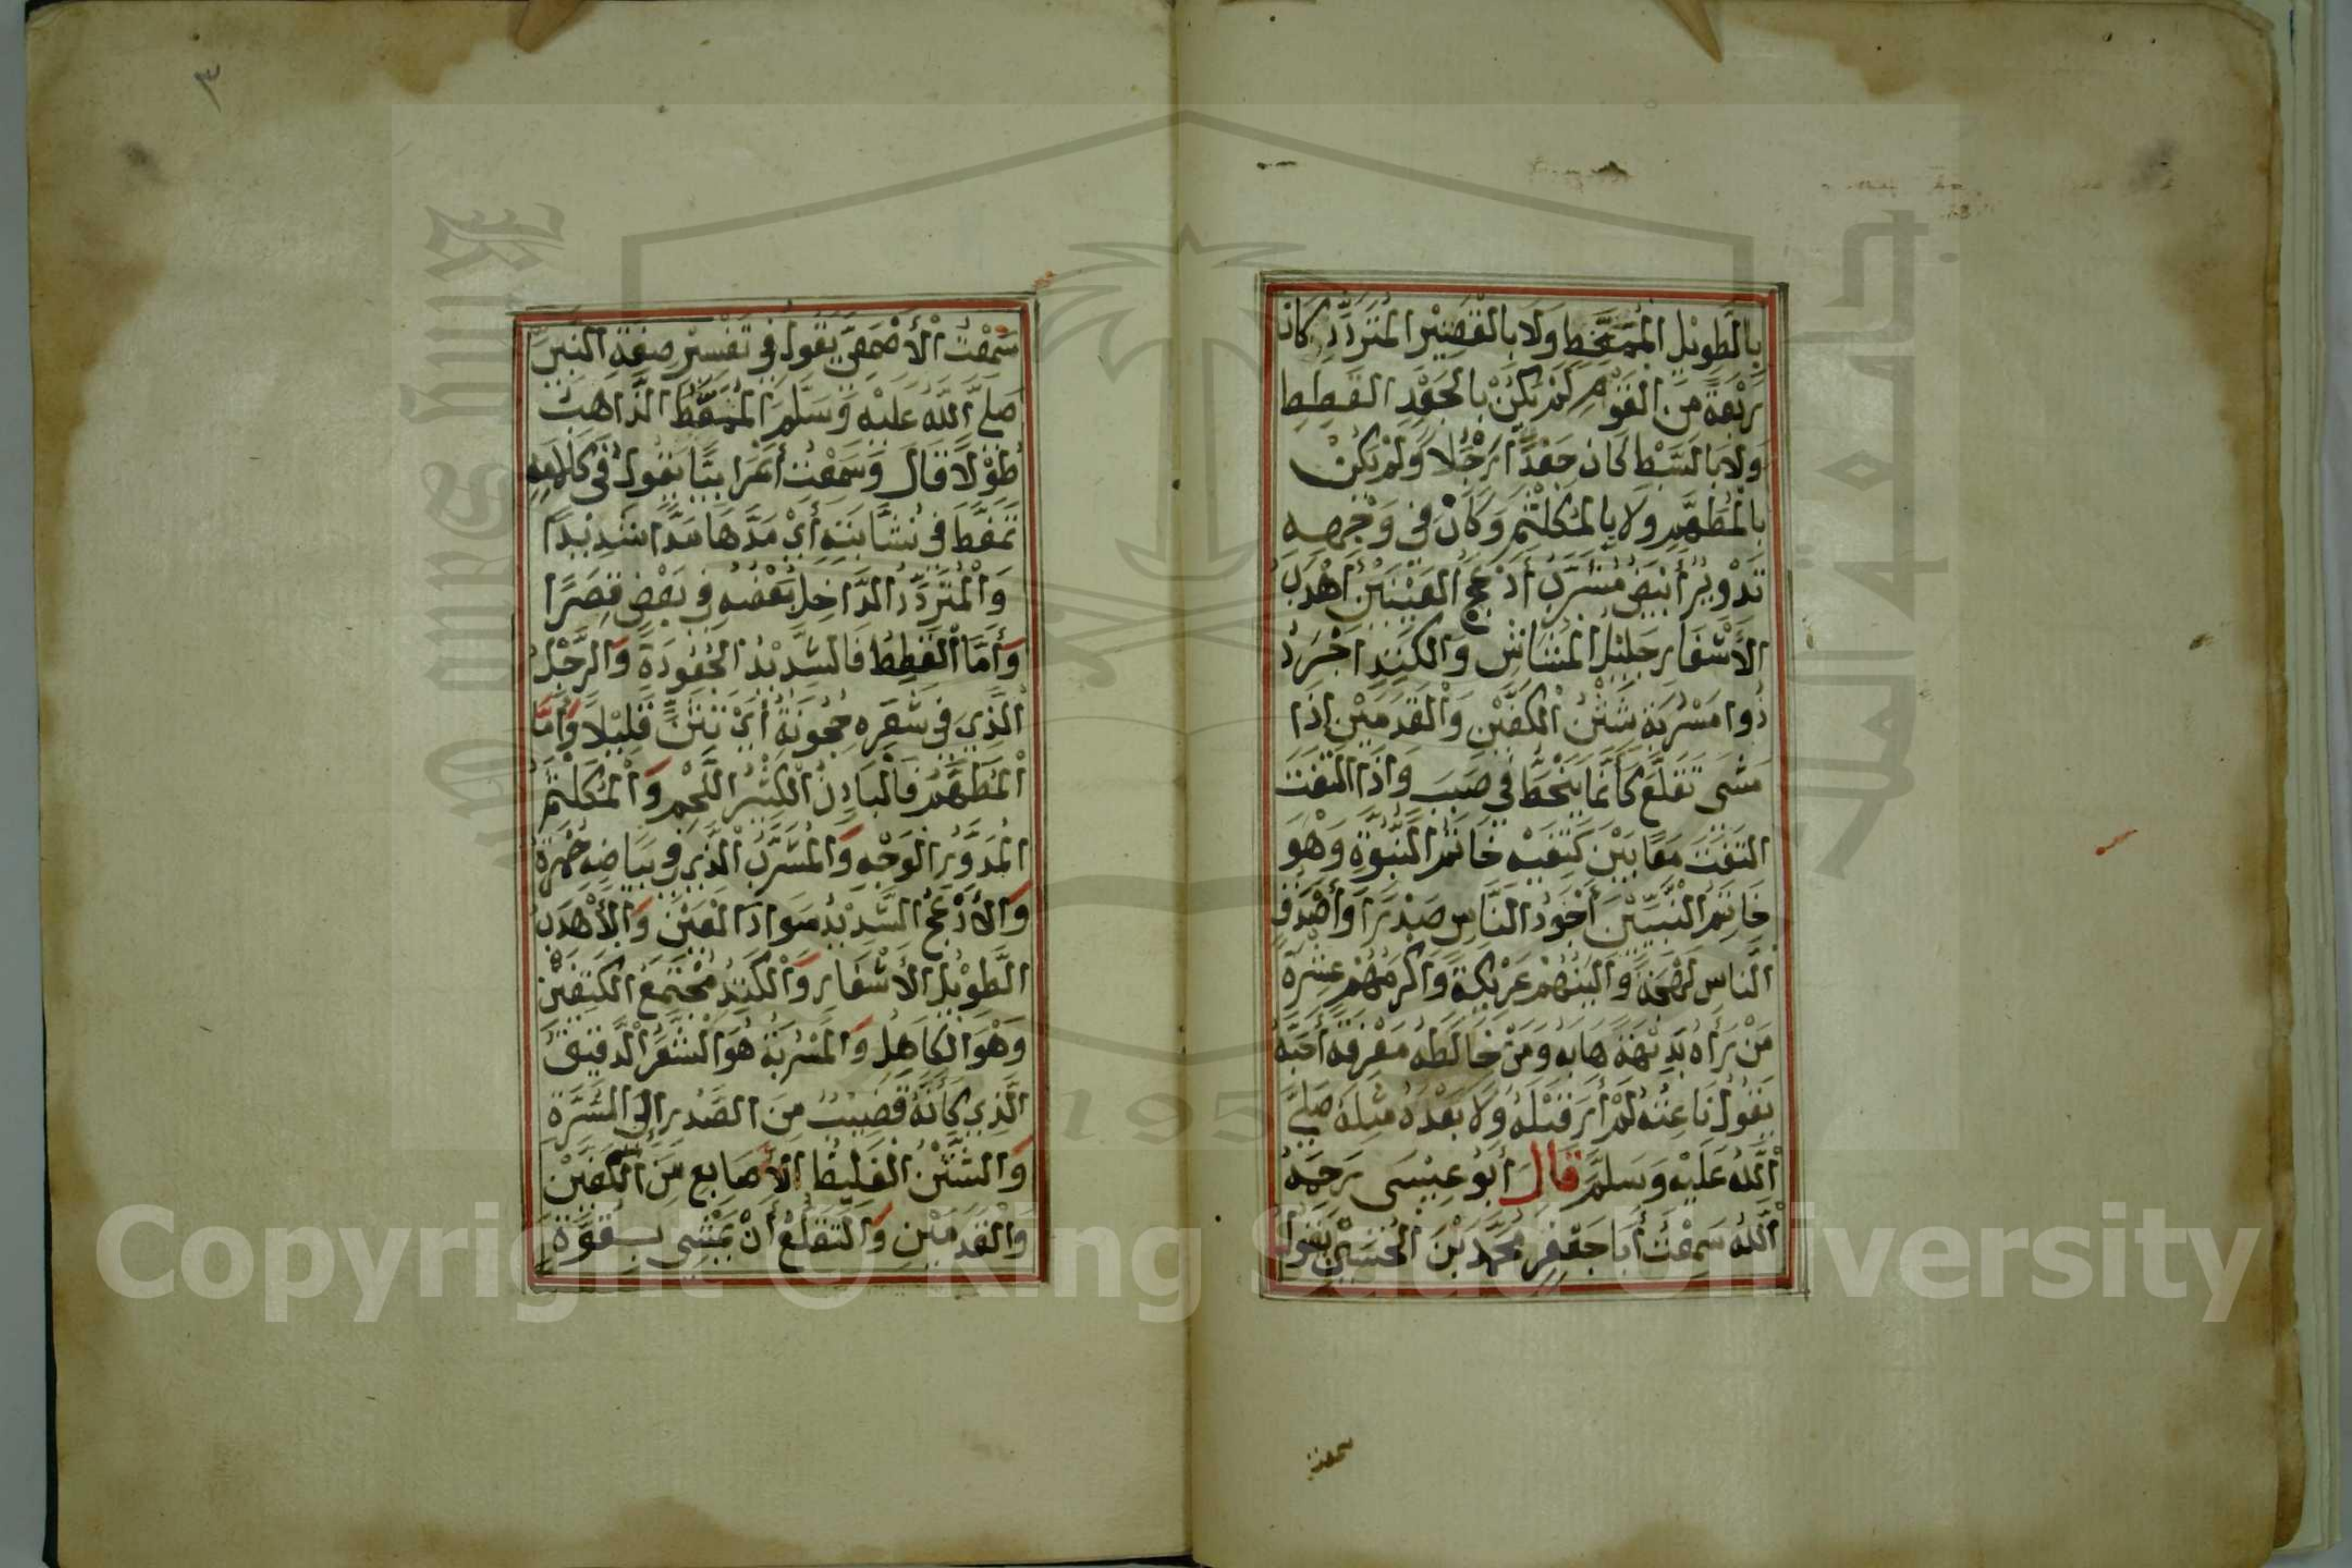 بِالطَّوِيْلِ الْمُمَّغِطِ وَلَا بِالْقَصِيْرِ الْمُتَرَدِّدِ كَانَ
رَبْعَةً مِنَ الْقَوْمِ لَمْ يَكُنْ بِالْجَعْدِ الْقَطِطِ
وَلَا بِالسَّبْطِ كَانَ جَعْدًا رَجُلًا وَلَمْ يَكُنْ
بِالْمُطَهَّمِ وَلَا بِالْمُكَلْثَمِ وَكَانَ فِي وَجْهِهِ
تَدْوِيْرٌ أَبْيَضُ مُشْرَبٌ أَدْعَجُ الْعَيْنَيْنِ أَهْدَبُ
الْأَشْفَارِ جَلِيْلُ الْمُشَاشِ وَالْكَتَدِ أَجْرَدُ
ذُوا مَسْرُبَةٍ شَثْنُ الْكَفَّيْنِ وَالْقَدَمَيْنِ إِذَا
مَشَى تَقَلَّعَ كَأَنَّمَا يَنْحَطُّ فِي صَبَبٍ وَإِذَا الْتَفَتَ
الْتَفَتَ مَعًا بَيْنَ كَتِفَيْهِ خَاتَمُ النُّبُوَّةِ وَهُوَ
خَاتَمُ النَّبِيِّيْنَ أَجْوَدُ النَّاسِ صَدْرًا وَأَصْدَقُ
النَّاسِ لَهْجَةً وَأَلْيَنُهُمْ عَرِيْكَةً وَأَكْرَمُهُمْ عِشْرَةً
مَنْ رَأَهُ بَدِيْهَةً هَابَهُ وَمَنْ خَالَطَهُ مَعْرِفَةً أَحَبَّهُ
يَقُوْلُ نَاعِتُهُ لَمْ أَرَ قَبْلَهُ وَلَا بَعْدَهُ مِثْلَهُ صَلَّى
اللّٰهُ عَلَيْهِ وَسَلَّمَ قَالَ أَبُوْ عِيْسَى رَحِمَهُ
اللّٰهُ سَمِعْتُ أَبَا جَعْفَرٍ مُحَمَّدَ بْنَ الْحُسَيْنِ يَقُوْلُ
سمعت
٣
سَمِعْتُ الْأَصْمَعِيَّ يَقُولُ فِي تَفْسِيْرِ صِفَةِ النَّبِيِّ
صَلَّى اللّٰهُ عَلَيْهِ وَسَلَّمَ الْمُمَّغِطُ الذَّاهِبُ
طُوْلًا قَالَ وَسَمِعْتُ أَعْرَابِيًّا يَقُولُ فِي كَلَامِهِ
تَمَغَّطَ فِي نُشَّابَتِهِ أَيْ مَدَّهَا مَدًّا شَدِيْدًا
وَالْمُتَرَدِّدُ الدَّاخِلُ بَعْضُهُ فِي بَعْضٍ قِصَرًا
وَأَمَّا الْقَطِطُ فَالشَّدِيْدُ الْجُعُودَةِ وَالرَّجُلُ
الَّذِي فِي شَعَرِهِ حُجُونَةٌ أَيْ تَثَنٍّ قَلِيْلًا وَأَمَّا
الْمُطَهَّمُ فَالْبَادِنُ الْكَثِيْرُ اللَّحْمِ وَالْمُكَلْثَمُ
الْمُدَوَّرُ الْوَجْهِ وَالْمُشْرَبُ الَّذِي فِي بَيَاضِهِ حُمْرَةٌ
وَالْأَدْعَجُ الشَّدِيْدُ سَوَادِ الْعَيْنِ وَالْأَهْدَبُ
الطَّوِيْلُ الْأَشْفَارِ وَالْكَتَدُ مُجْتَمَعُ الْكَتِفَيْنِ
وَهُوَ الْكَاهِلُ وَالْمَسْرُبَةُ هُوَ الشَّعَرُ الدَّقِيقُ
الَّذِي كَأَنَّهُ قَضِيْبٌ مِنَ الصَّدْرِ إِلَى السُّرَّةِ
وَالشَّثْنُ الْغَلِيظُ الْأَصَابِعِ مِنَ الْكَفَّيْنِ
وَالْقَدَمَيْنِ وَالتَّقَلُّعُ أَنْ يَمْشِيَ بِقُوَّةٍ
Copyright © King Saud University